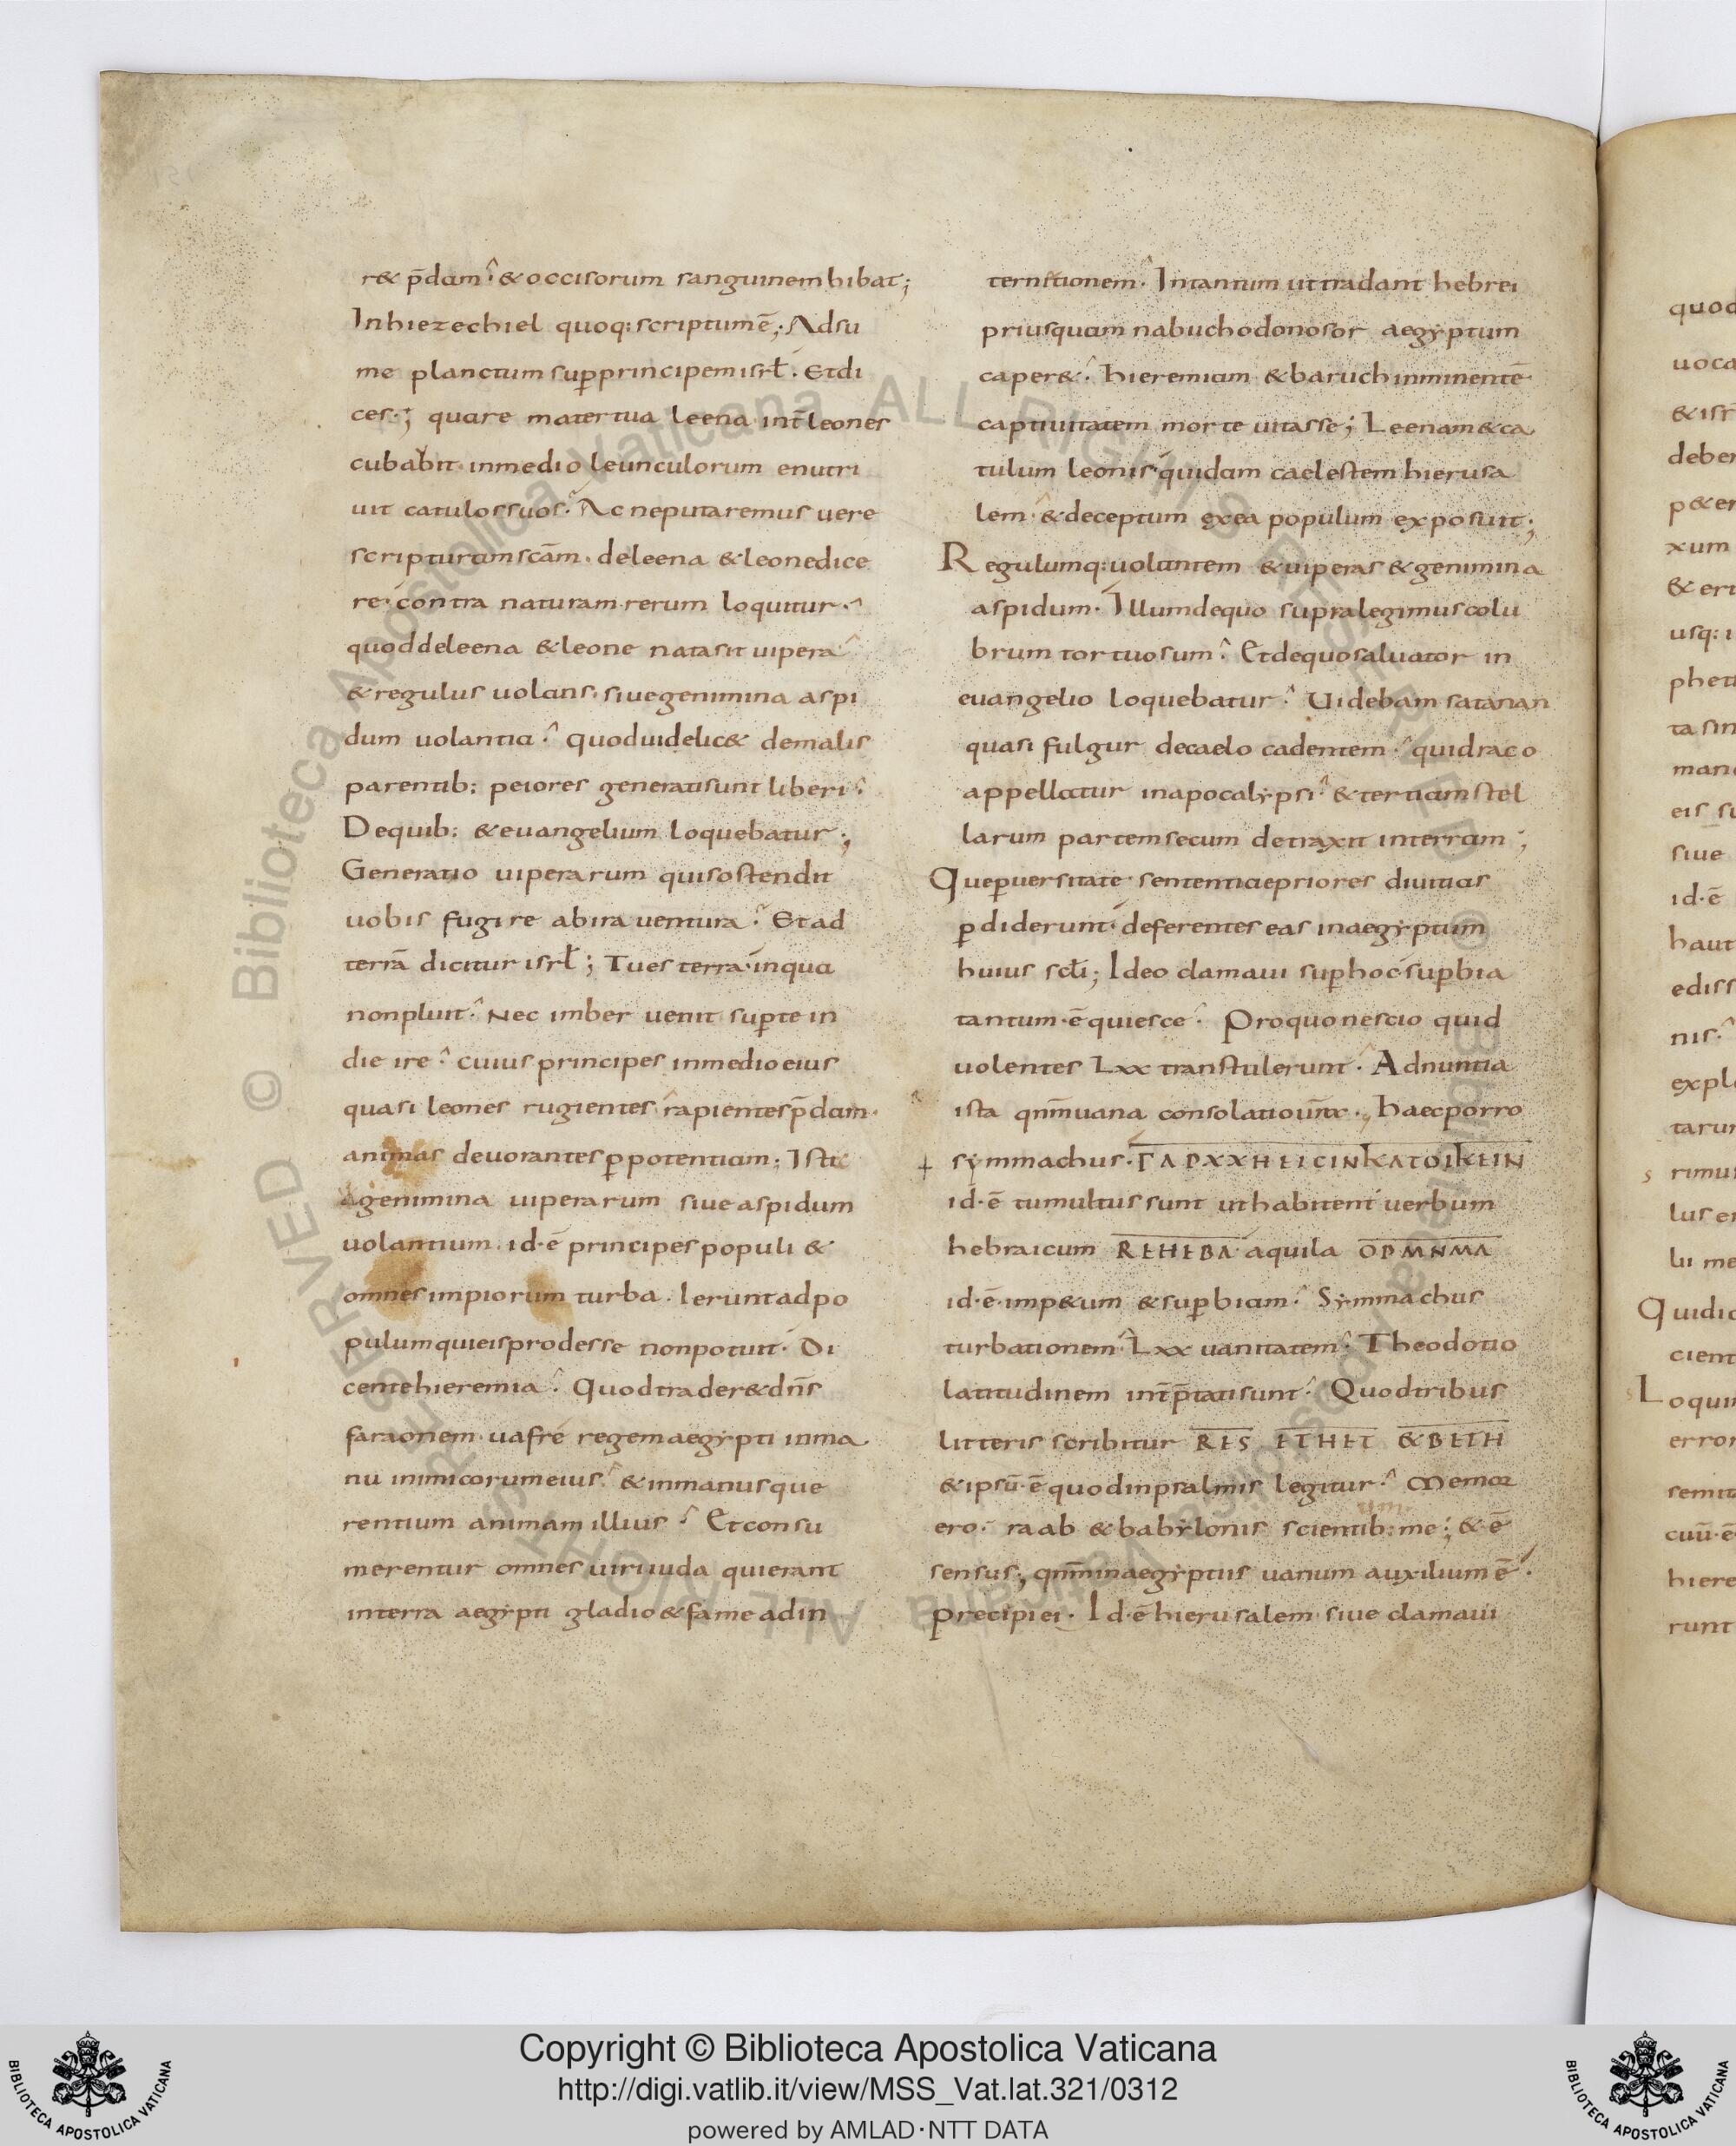 r& p̄dam · & occisorum sanguinem bibat;
Inhiezechiel quoq; scriptum ē; Adsu
me planctum sup principem isrł. Etdi
ces; quare mater tua leena int̄ leones
cubabit inmedio leunculorum enutri
uit catulos suos. Ac neputaremus uere
scripturam scām. deleena & leone dice
re contra naturam rerum loquitur.
quod deleena & leone nata sit uipera
& regulus uolans. siue genimina aspi
dum uolantia. quod uidelic& demalis
parentib: peiores generati sunt liberi.
Dequib: & euangelium loquebatur;
Generatio uiperarum quis ostendit
uobis fugire abira uentura. Et ad
terrā dicitur isrł; Tu es terra inqua
nonpluit. Nec imber uenit sup te in
die ire. cuius principes inmedio eius
quasi leones rugientes rapientes p̄dam.
animas deuorantes p potentiam; Isti
genimina uiperarum siue aspidum
uolantium. id·ē principes populi &
omnes impiorum turba. Ierunt adpo
pulum quieis prodesse nonpotuit. Di
cente hieremia. Quod trader& dn̄s
faraonem uafre regem aegypti inma
nu inimicorum eius. & inmanus que
rentium animam illius. Et consu
merentur omnes uiri iuda quierant
interra aegypti gladio & fame ad in
ternitionem. Intantum ut tradant hebrei
priusquam nabuchodonosor aegyptum
caper&. hieremiam & baruch inminentē
captiuitatem morte uitasse; Leenam & ca
tulum leonis quidam caelestem hierusa
lem. & deceptum ex ea populum exposuit;
Regulumq: uolantem & uiperas & genimina
aspidum. Illum dequo supra legimus colu
brum tortuosum. Et dequo saluator in
euangelio loquebatur. Uidebam satanan
quasi fulgur decaelo cadentem. qui draco
appellatur inapocalypsi. & tertiam stel
larum partem secum detraxit interram;
Que puersitate sententiae priores diuitias
pdiderunt. deferentes eas inaegyptum
huius scłi; Ideo clamaui sup hoc supbia
tantum·ē quiesce. Pro quo nescio quid
uolentes Lxx transtulerunt. Adnuntia
ista qnm̄ uana consolatio ūra. haec porro
symmachus. ΓΑΡΧΧΗΕΙCΙΝΚΑΤΟΙΚΕΙΝ
id·ē tumultus sunt ut habitent uerbum
hebraicum REHEBA aquila OPMNMA
id·ē·imp&um & supbiam. Symmachus
turbationem. Lxx uanitatem. Theodotio
latitudinem int̄p̄tati sunt. Quod tribus
litteris scribitur RES ETHET & BETH
& ipsū·ē quod inpsalmis legitur. Memor
ero. raab & babylonis scientib: me; & ē
sensus; qnm̄ inaegyptiis uanum auxilium ē.
precipi ei. Id·ē hierusalem siue clamaui
Copyright © Biblioteca Apostolica Vaticana
http://digi.vatlib.it/view/MSS_Vat.lat.321/0312
powered by AMLAD·NTT DATA